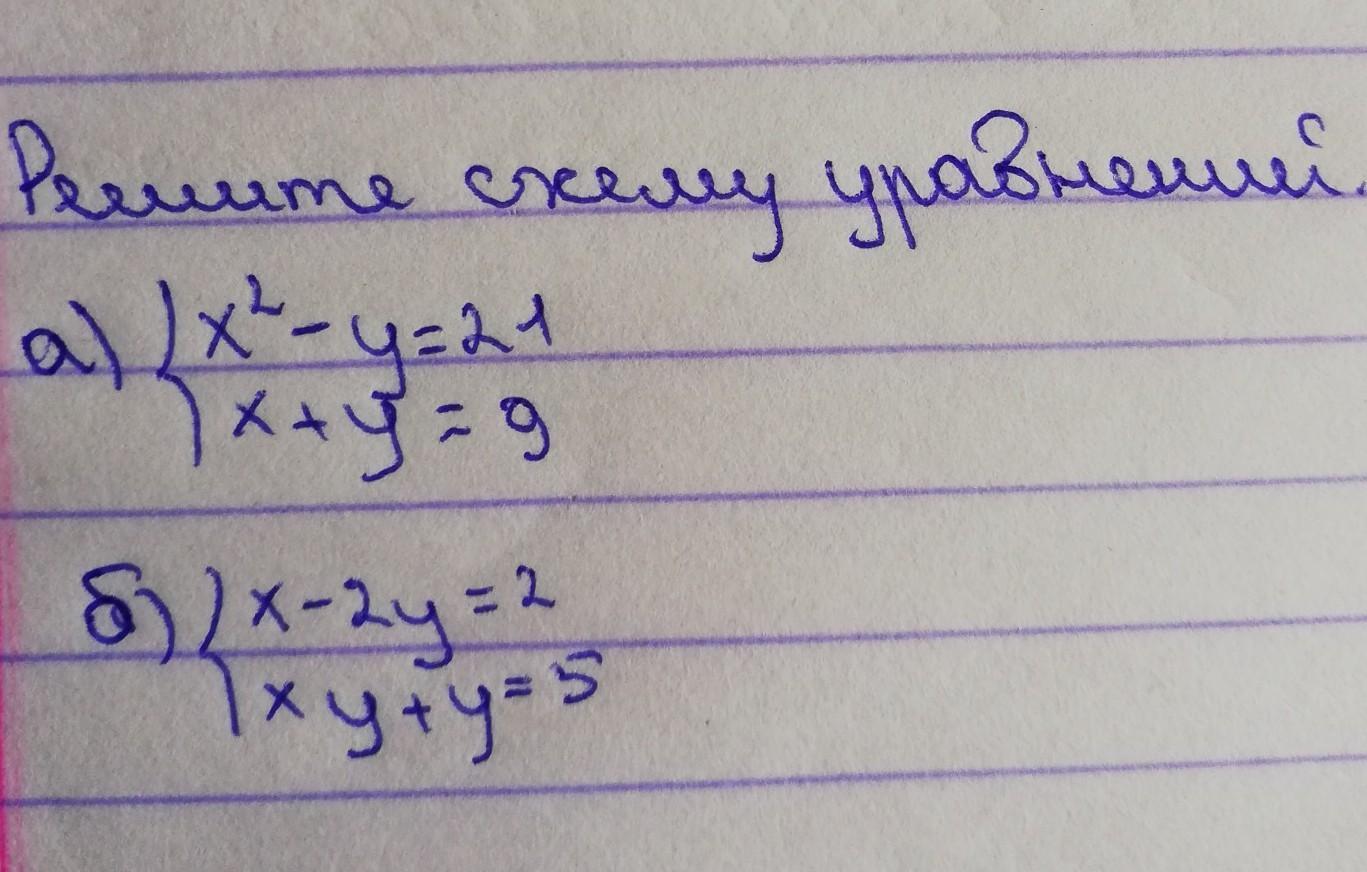 Решите схему уравнений.
а) { x² - y = 21
x + y = 9
б) { x - 2y = 2
xy + y = 5